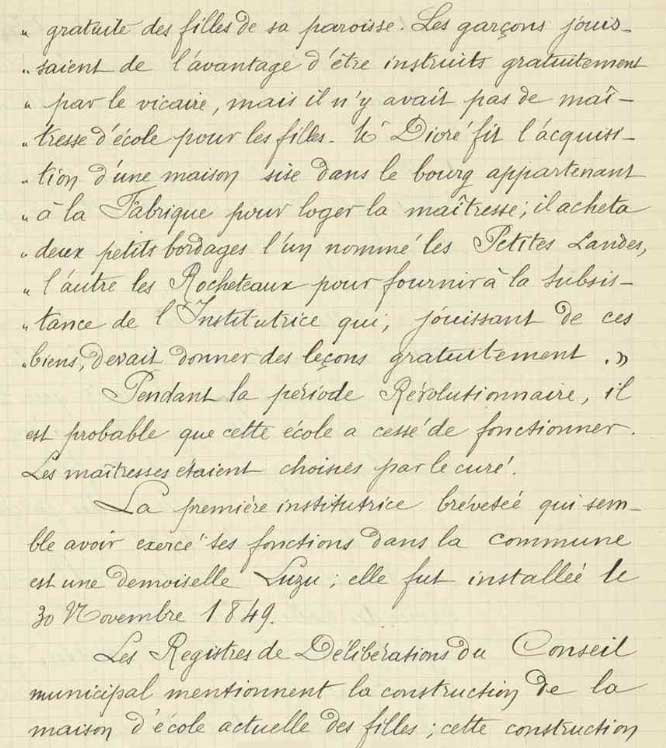 „ gratuité des filles de sa paroisse. Les garçons jouis-
„ saient de l'avantage d'être instruits gratuitement
„ par le vicaire, mais il n'y avait pas de maî-
„ tresse d'école pour les filles. Mr Dioré fit l'acquisi-
„ tion d'une maison sise dans le bourg appartenant
„ à la Fabrique pour loger la maîtresse; il acheta
„ deux petits bordages l'un nommé les Petites Landes,
„ l'autre les Rocheteaux pour fournir à la subsis-
„ tance de l'Institutrice qui, jouissant de ces
„ biens, devait donner des leçons gratuitement. »
Pendant la période Révolutionnaire, il
est probable que cette école a cessé de fonctionner.
Les maîtresses étaient choisies par le curé.
La première institutrice brévetée qui sem-
ble avoir exercé ses fonctions dans la commune
est une demoiselle Luzu; elle fut installée le
30 Novembre 1849.
Les Registres de Délibérations du Conseil
municipal mentionnent la construction de la
maison d'école actuelle des filles; cette construction